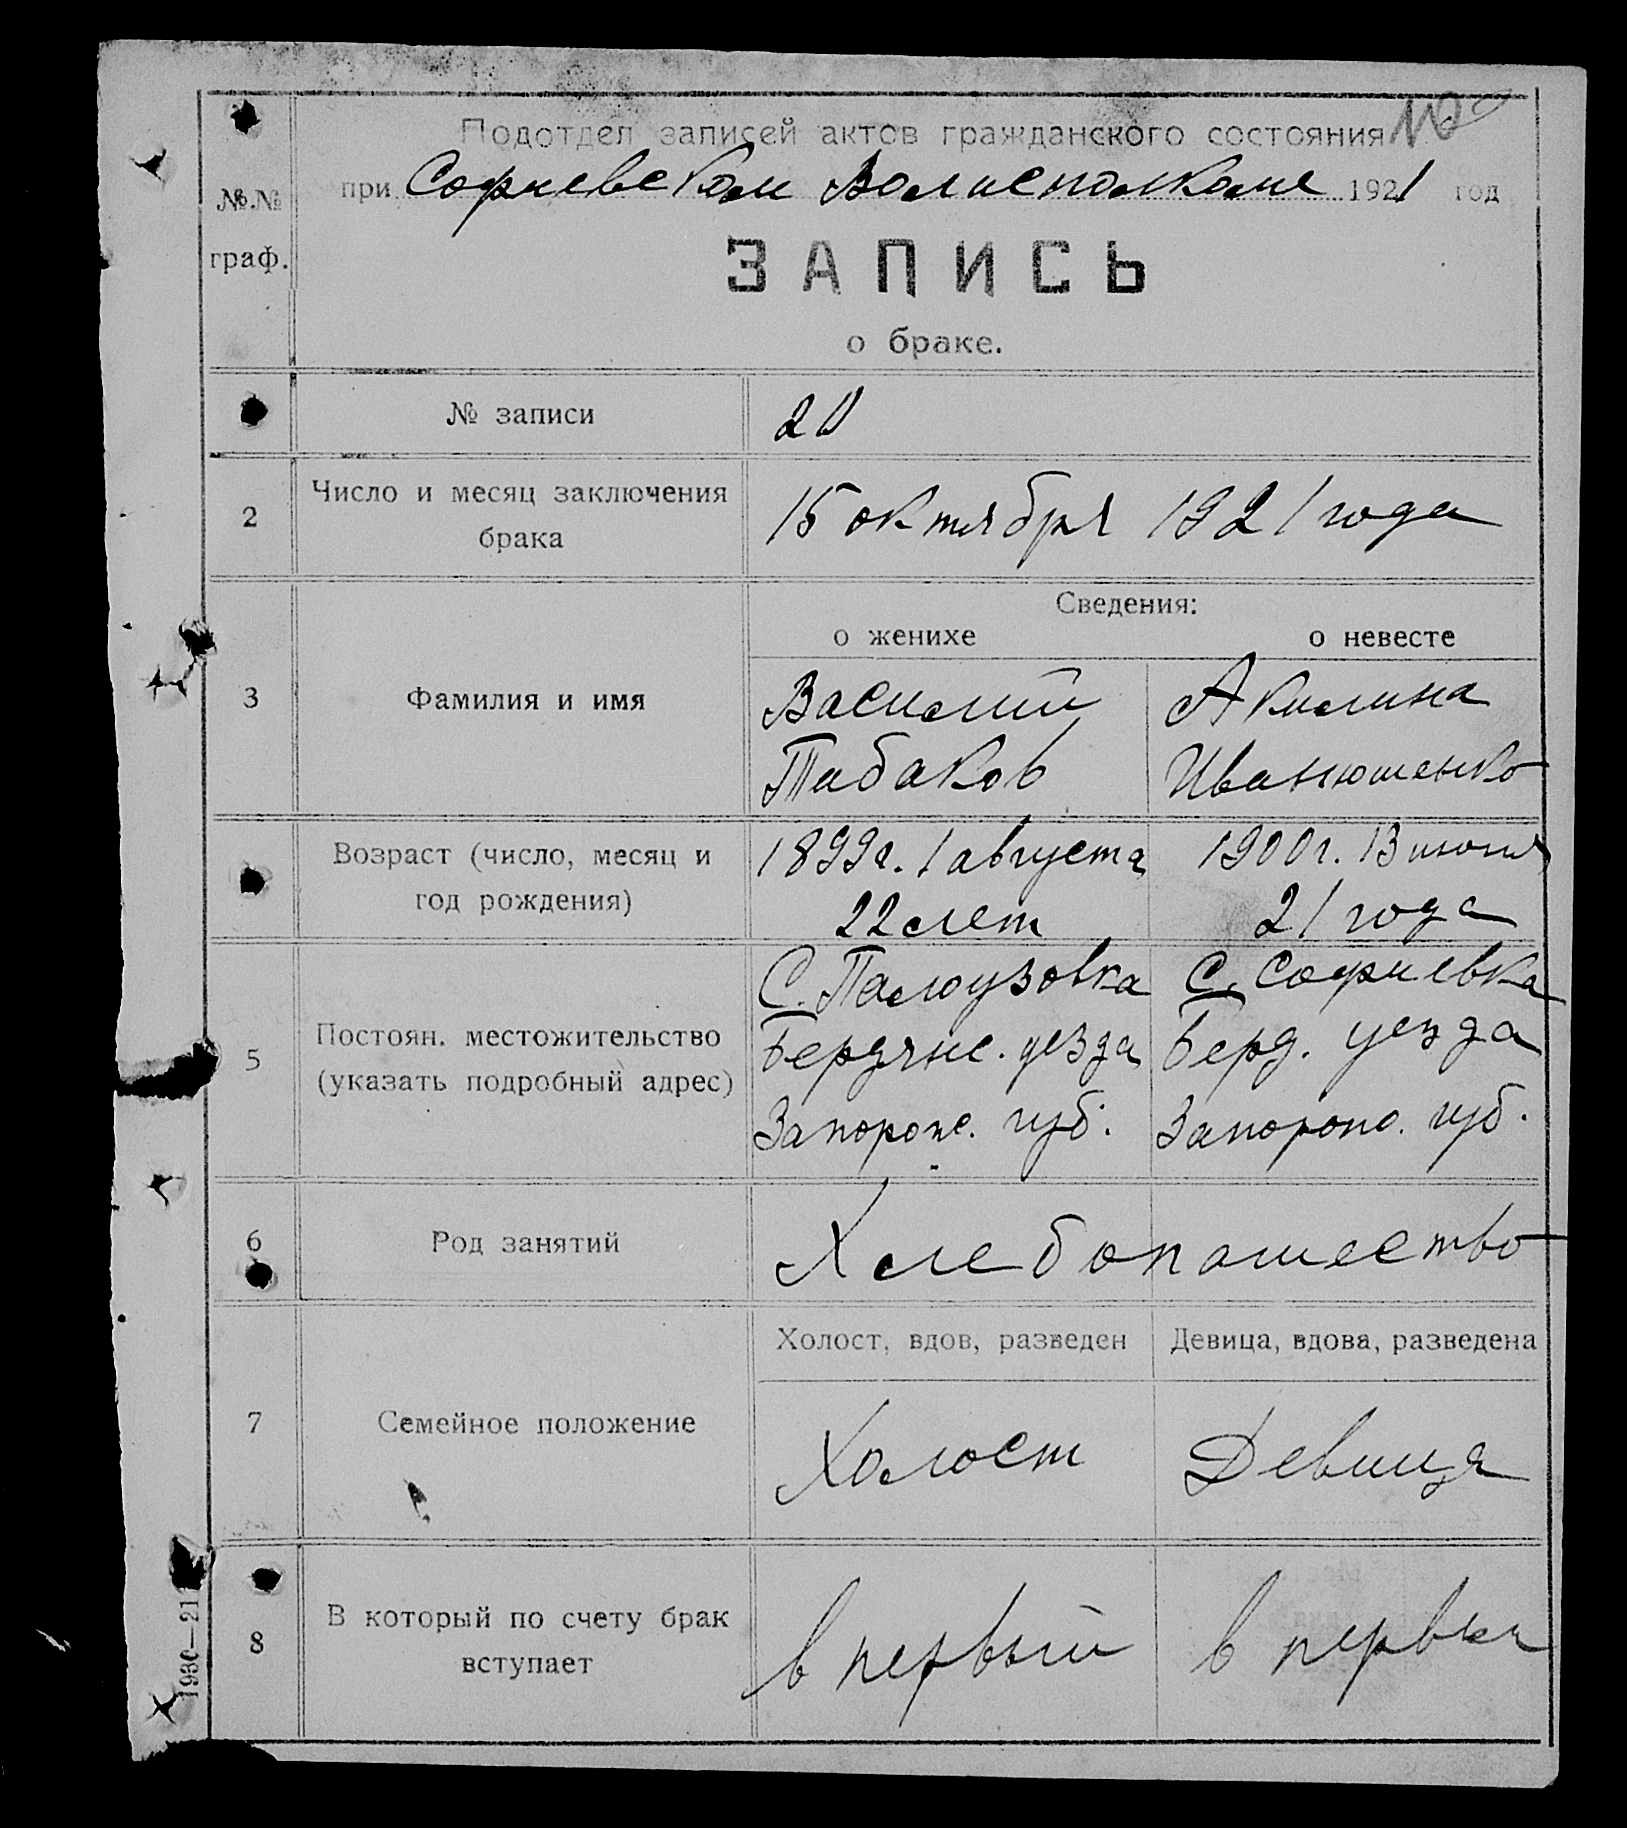 Подотдел записей актов гражданского состояния
при Софиевском Волисполкоме 1921 год
№.№
граф.
ЗАПИСЬ
о браке.
№ записи 20
2 Число и месяц заключения 15 октября 1921 года
брака
Сведения:
о женихе о невесте
3 Фамилия и имя Василий Акилина
Табаков Иванюшенко
Возраст (число, месяц и 1899г. 1 августа 1900г. 13 июня
год рождения) 22 лет 21 года
С. Палоузовка С. Софиевка
5 Постоян. местожительство Бердянс. уезда Берд. уезда
(указать подробный адрес) Запорож. губ. Запорож. губ.
6 Род занятий Хлебопашество
Холост, вдов, разведен Девица, вдова, разведена
7 Семейное положение Холост Девица
8 В который по счету брак в первый в первый
вступает